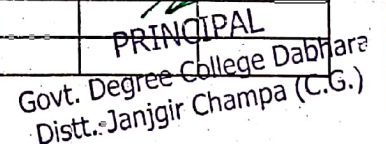 PRINCIPAL
Govt. Degree College Dabhara
Distt.-Janjgir Champa (C.G.)